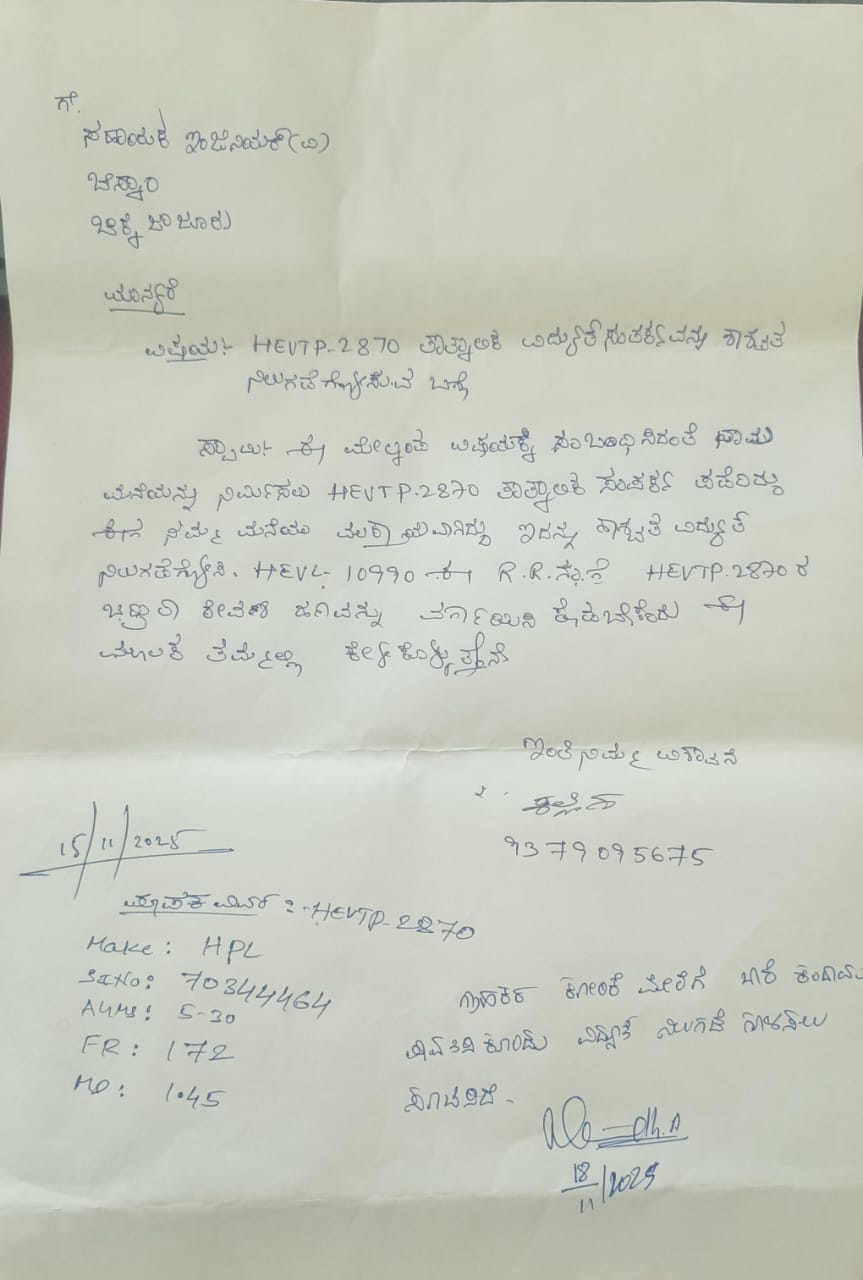 ಗೆ.
ಸಹಾಯಕ ಇಂಜಿನಿಯರ್ (ವಿ)
ಬೆಸ್ಕಾಂ
ಚಿಕ್ಕಜಾಜೂರು
ಮಾನ್ಯರೆ
ವಿಷಯ:- HEVTP-2870 ತಾತ್ಕಾಲಿಕ ವಿದ್ಯುತ್ ಸಂಪರ್ಕವನ್ನು ಶಾಶ್ವತ
ನಿಲುಗಡೆಗೊಳಿಸುವ ಬಗ್ಗೆ
ಸ್ವಾಮಿ:- ಈ ಮೇಲ್ಕಂಡ ವಿಷಯಕ್ಕೆ ಸಂಬಂಧಿಸಿದಂತೆ ನಾವು
ಮನೆಯನ್ನು ನಿರ್ಮಿಸಲು HEVTP-2870 ತಾತ್ಕಾಲಿಕ ಸಂಪರ್ಕ ಪಡೆದಿದ್ದು
ಈಗ ನಮ್ಮ ಮನೆಯು ಇದನ್ನು ಶಾಶ್ವತ ವಿದ್ಯುತ್
ನಿಲುಗಡೆಗೊಳಿಸಿ. HEVL-10990 ಈ R.R.ನಂ.ಗೆ HEVTP-2870 ರ
ಹಣವನ್ನು ವರ್ಗಾಯಿಸಿ ಕೊಡಬೇಕೆಂದು ಈ
ಮೂಲಕ ತಮ್ಮಲ್ಲಿ ಕೇಳಿಕೊಳ್ಳುತ್ತೇನೆ
ಇಂತಿ ನಿಮ್ಮ ವಿಶ್ವಾಸಿ
9379095675
15/11/2025
ಮಾಪಕ ವಿವರ :- HEVTP-2870
Make : HPL
Sl No : 70344464
Amps : 5-30
FR : 172
MD : 1.45
ಗ್ರಾಹಕರ ಕೋರಿಕೆ ಮೇರೆಗೆ ಬಾಕಿ ಕಂದಾಯ
ಕೊಂಡು ವಿದ್ಯುತ್ ನಿಲುಗಡೆ
ಸೂಚಿಸಿದೆ.
18/11/2025